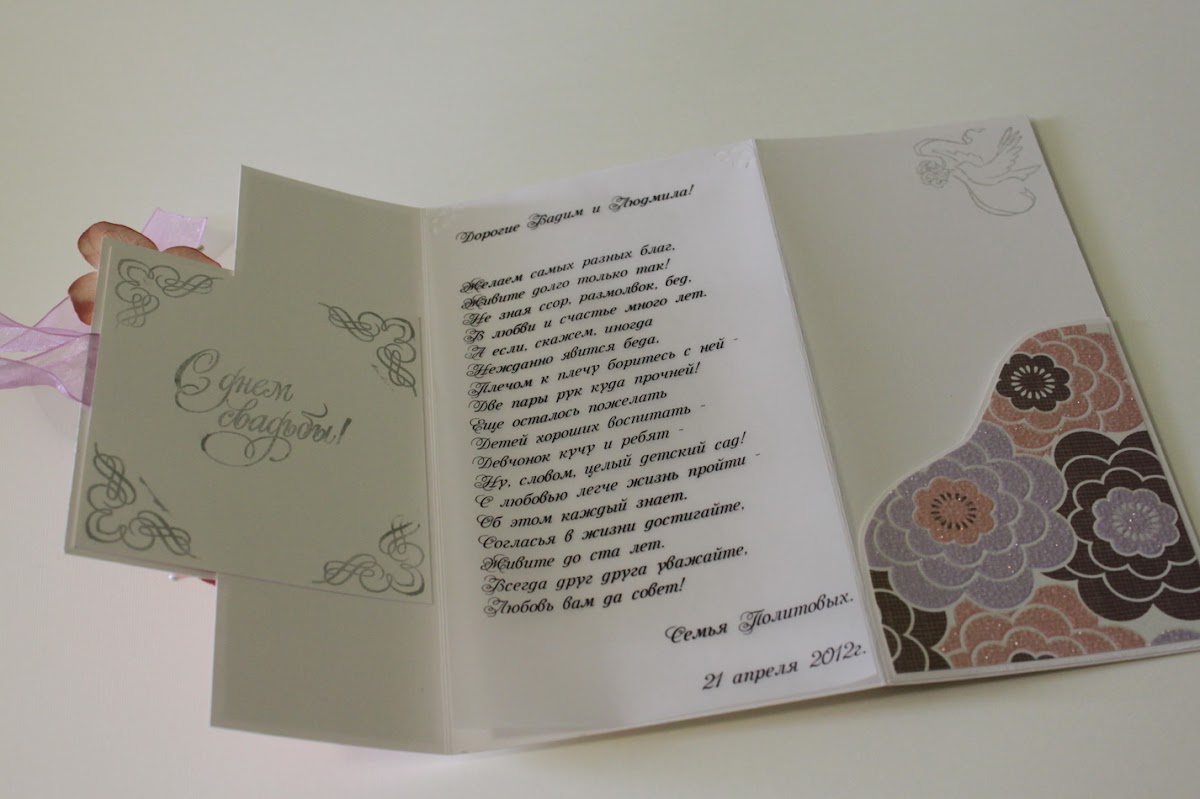 С днем
свадьбы!
Дорогие Вадим и Людмила!
Желаем самых разных благ,
Живите долго только так!
Не зная ссор, размолвок, бед,
В любви и счастье много лет.
А если, скажем, иногда
Нежданно явится беда,
Плечом к плечу боритесь с ней -
Две пары рук куда прочней!
Еще осталось пожелать
Детей хороших воспитать -
Девчонок кучу и ребят -
Ну, словом, целый детский сад!
С любовью легче жизнь пройти -
Об этом каждый знает.
Согласья в жизни достигайте,
Живите до ста лет.
Всегда друг друга уважайте,
Любовь вам да совет!
Семья Политовых.
21 апреля 2012г.